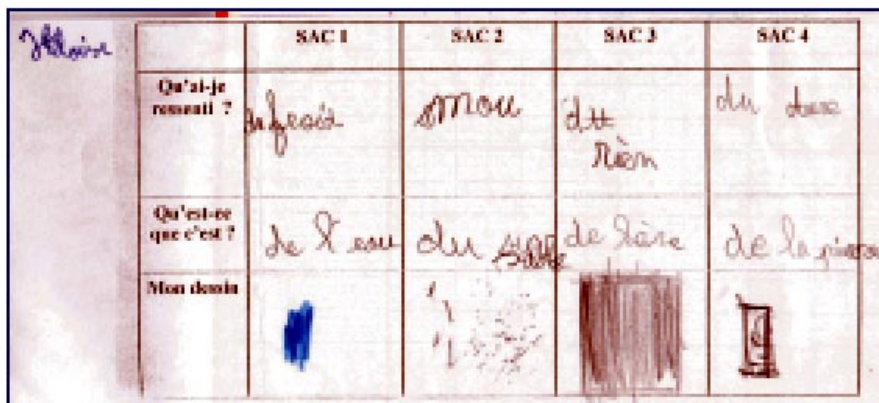 SAC 1 SAC 2 SAC 3 SAC 4
Qu'ai-je
ressenti ?
du froid mou du
rièn
du dure
Qu'est-ce
que c'est ?
de l'eau du sable de l'ère de la pierre
Mon dessin